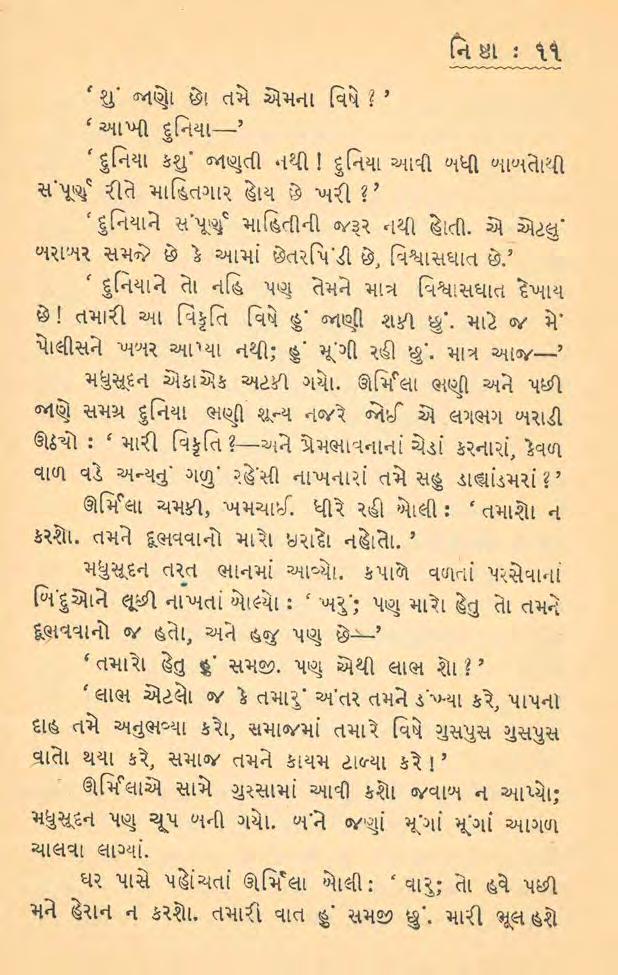 નિષ્ઠા : ૧૧
‘શું જાણો છો તમે એમના વિષે ?’
‘આખી દુનિયા—’
‘દુનિયા કશું જાણતી નથી ! દુનિયા આવી બધી બાબતોથી
સંપૂર્ણ રીતે માહિતગાર હોય છે ખરી ?’
‘દુનિયાને સંપૂર્ણ માહિતીની જરૂર નથી હોતી. એ એટલું
બરાબર સમજે છે કે આમાં છેતરપિંડી છે, વિશ્વાસઘાત છે.’
‘દુનિયાને તો નહિ પણ તેમને માત્ર વિશ્વાસઘાત દેખાય
છે ! તમારી આ વિકૃતિ વિષે હું જાણી શકી છું. માટે જ મેં
પોલીસને ખબર આપ્યા નથી; હું મૂંગી રહી છું. માત્ર આજ—’
મધુસૂદન એકાએક અટકી ગયો. ઊર્મિલા ભણી અને પછી
જાણે સમગ્ર દુનિયા ભણી શૂન્ય નજરે જોઈ એ લગભગ બરાડી
ઊઠયો : ‘મારી વિકૃતિ ?—અને પ્રેમભાવનાનાં ચેડાં કરનારાં, કેવળ
વાળ વડે અન્યનું ગળું રહેંસી નાખનારાં તમે સહુ ડાહ્યાંડમરાં ?’
ઊર્મિલા ચમકી, ખમચાઈ. ધીરે રહી બોલી : ‘તમાશો ન
કરશો. તમને દૂભવવાનો મારો ઇરાદો નહોતો.’
મધુસૂદન તરત ભાનમાં આવ્યો. કપાળે વળતાં પરસેવાનાં
બિંદુઓને લૂછી નાખતાં બોલ્યો : ‘ખરું; પણ મારો હેતુ તો તમને
દૂભવવાનો જ હતો, અને હજુ પણ છે—’
‘તમારો હેતુ હું સમજી. પણ એથી લાભ શો ?’
‘લાભ એટલો જ કે તમારું અંતર તમને ડંખ્યા કરે, પાપનો
દાહ તમે અનુભવ્યા કરો, સમાજમાં તમારે વિષે ગુસપુસ ગુસપુસ
વાતો થયા કરે, સમાજ તમને કાયમ ટાળ્યા કરે !’
ઊર્મિલાએ સામે ગુસ્સામાં આવી કશો જવાબ ન આપ્યો;
મધુસૂદન પણ ચૂપ બની ગયો. બંને જણાં મૂંગાં મૂંગાં આગળ
ચાલવા લાગ્યાં.
ઘર પાસે પહોંચતાં ઊર્મિલા બોલી : ‘વારુ; તો હવે પછી
મને હેરાન ન કરશો. તમારી વાત હું સમજી છું. મારી ભૂલ હશે